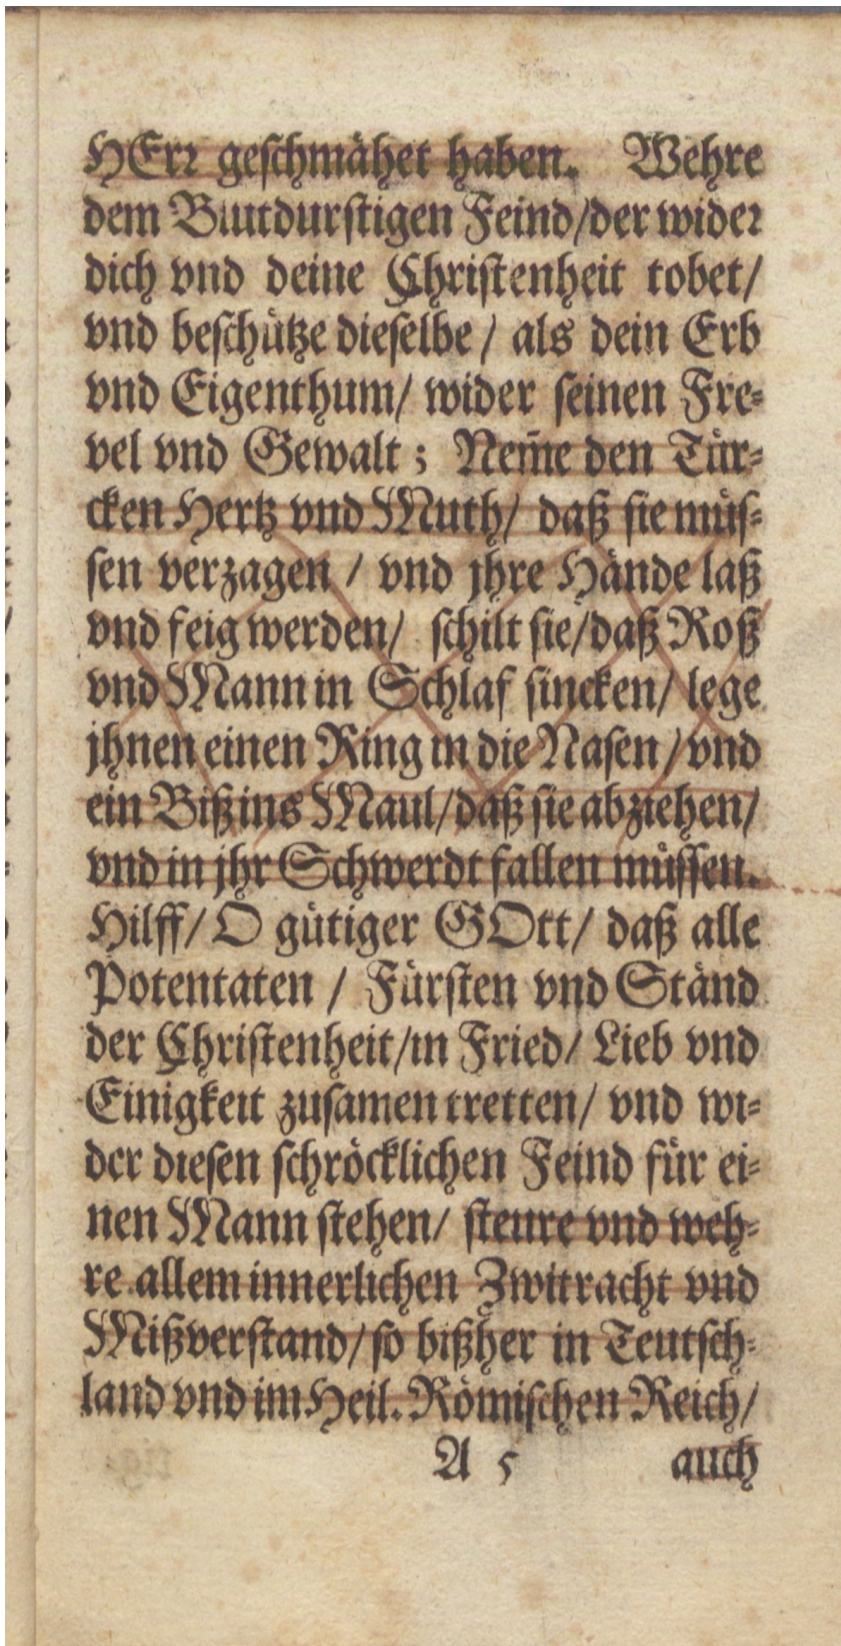 HErꝛ geschmähet haben. Wehre
dem Blutdurstigen Feind/der wideꝛ
dich vnd deine Christenheit tobet/
vnd beschütze dieselbe / als dein Erb
vnd Eigenthum/ wider seinen Fre-
vel vnd Gewalt; Nem̃e den Tür-
cken Hertz vnd Muth/ daß sie müs-
sen verzagen / vnd jhre Hände laß
vnd feig werden/ schilt sie/daß Roß
vnd Mann in Schlaf sincken/ lege
jhnen einen Ring in die Nasen / vnd
ein Biß ins Maul/daß sie abziehen/
vnd in jhr Schwerdt fallen müssen.
Hilff/ O gütiger GOtt/ daß alle
Potentaten / Fürsten vnd Ständ
der Christenheit/in Fried/ Lieb vnd
Einigkeit zusamen tretten/ vnd wi-
der diesen schröcklichen Feind für ei-
nen Mann stehen/ steure vnd weh-
re allem innerlichen Zwitracht vnd
Mißverstand/so bißher in Teutsch-
land vnd im Heil. Römischen Reich/
A 5 auch